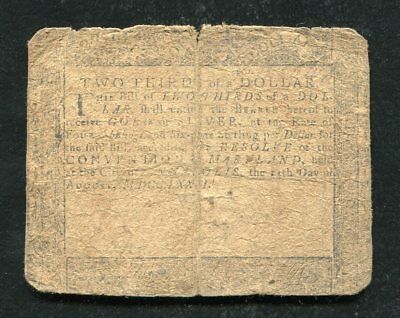 TWO THIRDS of a DOLLAR
THIS Bill of TWO THIRDS of a DOL-
LAR shall entitle the Bearer hereof to
receive GOLD or SILVER, at the Rate of
Four Shillings and Six-pence Dollar for
the said Bill, according to a RESOLVE of the
CONVENTION of MARYLAND, held
at the City of ANNAPOLIS, the 14th Day of
August, MDCCLXXVI.